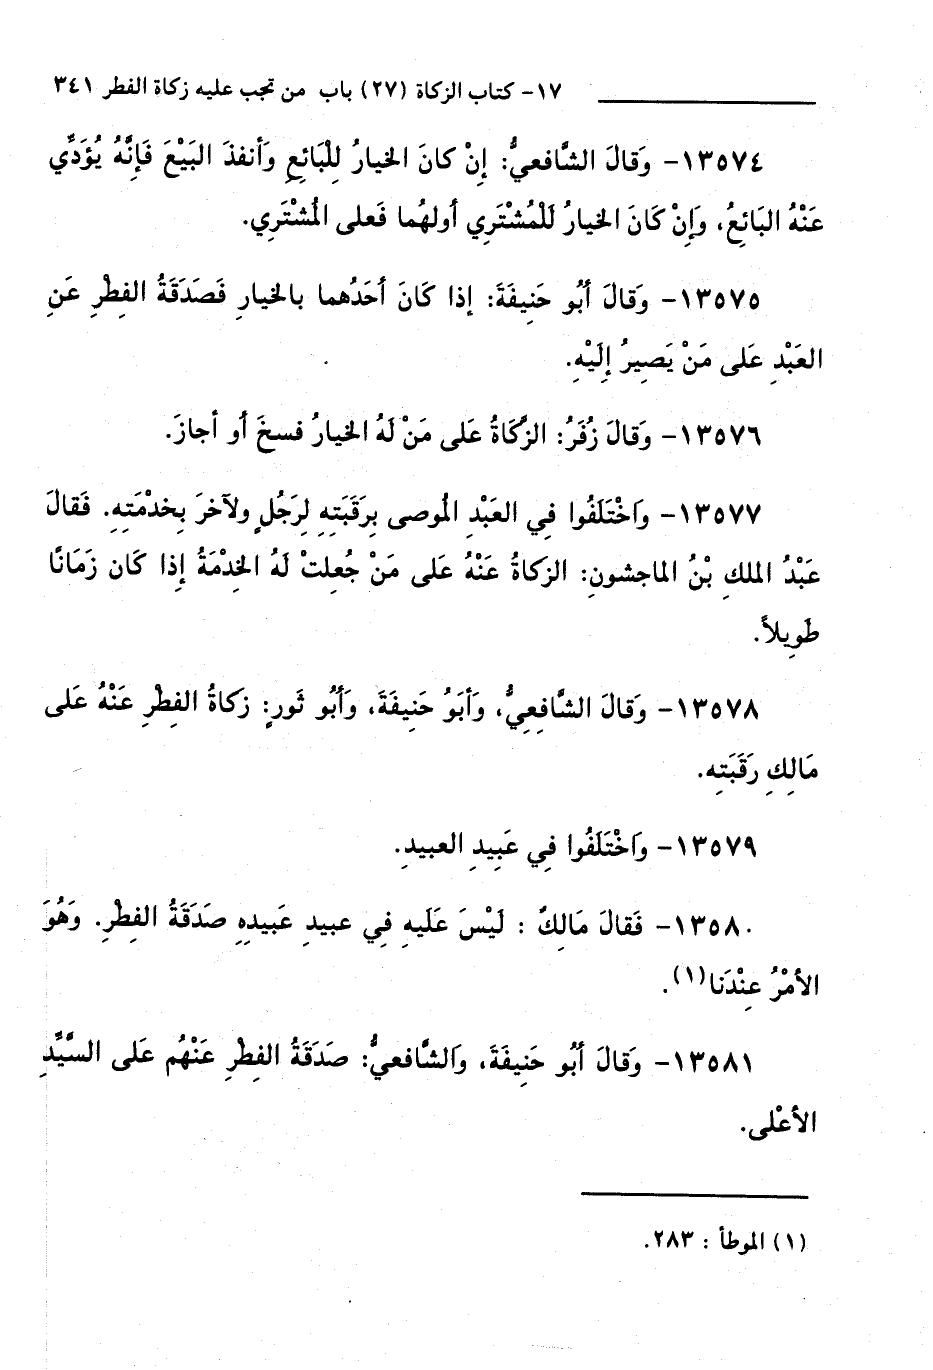 ١٧- كتاب الزكاة (٢٧) باب من تجب عليه زكاة الفطر ٣٤١
١٣٥٧٤- وَقالَ الشَّافعيُّ: إِنْ كانَ الخيارُ لِلْبَائِعِ وَأنفذَ البَيْعَ فَإِنَّهُ يُؤَدِّي
عَنْهُ البَائِعُ، وَإِنْ كَانَ الخيارُ لَلْمُشْتَرِي أولهُما فَعلى المُشْتَرِي.
١٣٥٧٥- وَقالَ أَبُو حَنِيفَةَ: إذا كَانَ أحَدُهما بالخيارِ فَصَدَقَةُ الفِطْرِ عَنِ
العَبْدِ عَلى مَنْ يَصِيرُ إِلَيْهِ.
١٣٥٧٦- وَقالَ زُفَرُ: الزَّكَاةُ عَلى مَنْ لَهُ الخيارُ فسخَ أو أجازَ.
١٣٥٧٧- وَاخْتَلَفُوا فِي العَبْدِ المُوصى بِرَقَبَتِهِ لِرَجُلٍ ولآخرَ بِخدْمَتِهِ. فَقالَ
عَبْدُ الملكِ بْنُ الماجشونِ: الزكاةُ عَنْهُ عَلى مَنْ جُعلتْ لَهُ الخِدْمَةُ إذا كَان زَمَانًا
طَوِيلاً.
١٣٥٧٨- وَقالَ الشَّافِعِيُّ، وَأبَوُ حَنِيفَةَ، وَأَبُو ثَورٍ: زكاةُ الفِطْرِ عَنْهُ عَلى
مَالِكِ رَقَبَتِه.
١٣٥٧٩- وَاخْتَلَفُوا فِي عَبِيدِ العبيدِ.
١٣٥٨٠- فَقالَ مَالِكٌ : لَيْسَ عَلَيهِ فِي عبيدِ عَبيدِهِ صَدَقَةُ الفِطْرِ. وَهُوَ
الأمْرُ عِنْدَنا(١).
١٣٥٨١- وَقالَ أَبُو حَنِيفَةَ، وَالشَّافعيُّ: صَدَقَةُ الفِطْرِ عَنْهُم عَلى السَّيِّدِ
الأعْلى.
(١) الموطأ : ٢٨٣.